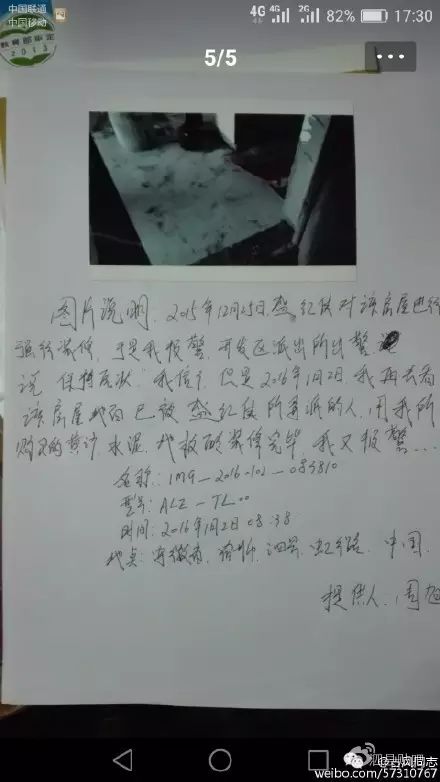 中国联通
中国移动
4G 4G 2G 82% 17:30
教育部审定
2013
5/5
图片说明：2015年12月25日，盘红侠对该房屋进行
强行装修，于是我报警，开发区派出所出警
说 保持原状，我信了，但是2016年1月2日，我再去看
该房屋地面已被盘红侠所委派的人，用我所
购买的黄沙、水泥、地板砖装修完毕，我又报警…
名称：IMG_2016-102-083810
型号：ALE-TL00
时间：2016年1月2日08:38
地点：安徽省、宿州、泗县、虹乡路、中国
提供人：周旭
泗县贴吧
@台风同志
weibo.com/57310767